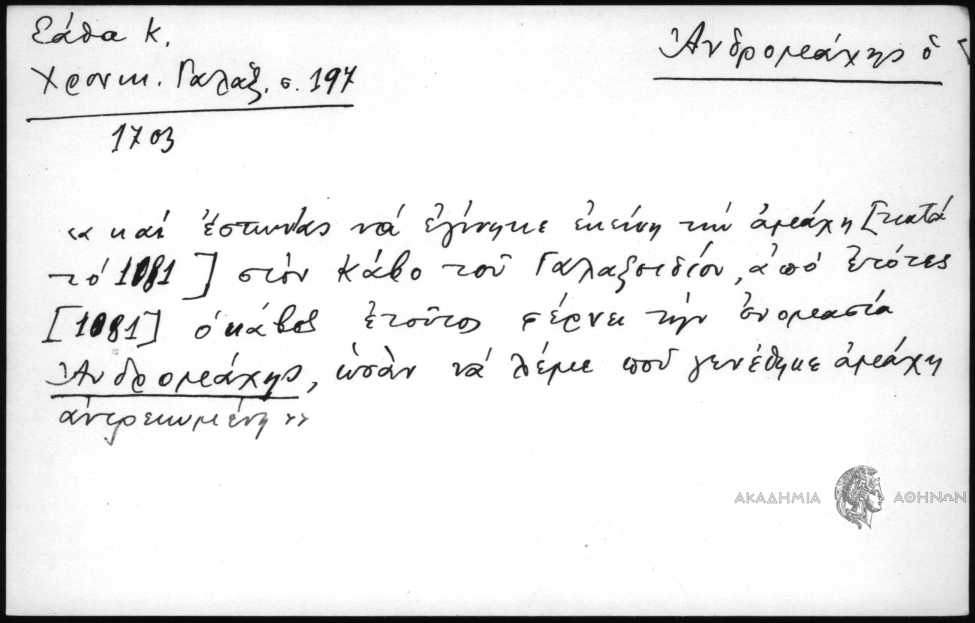 Σάθα Κ.
Χρονικ. Γαλαξ. σ. 197
1703
Ἀνδρομάχης ὁ
«καὶ ἔστωντας νὰ ἐγίνηκε ἐκείνη τὴν ἀμάχη [κατὰ
τὸ 1081] στὸν Κάβο τοῦ Γαλαξειδίου, ἀπὸ ἐτότες
[1081] ὁ κάβος ἐτοῦτος σέρνει τὴν ὀνομασία
Ἀνδρομάχης, ὡσὰν νὰ λέμε ποῦ γενέθηκε ἀμάχη
ἀντρειωμένη»
ΑΚΑΔΗΜΙΑ ΑΘΗΝΩΝ